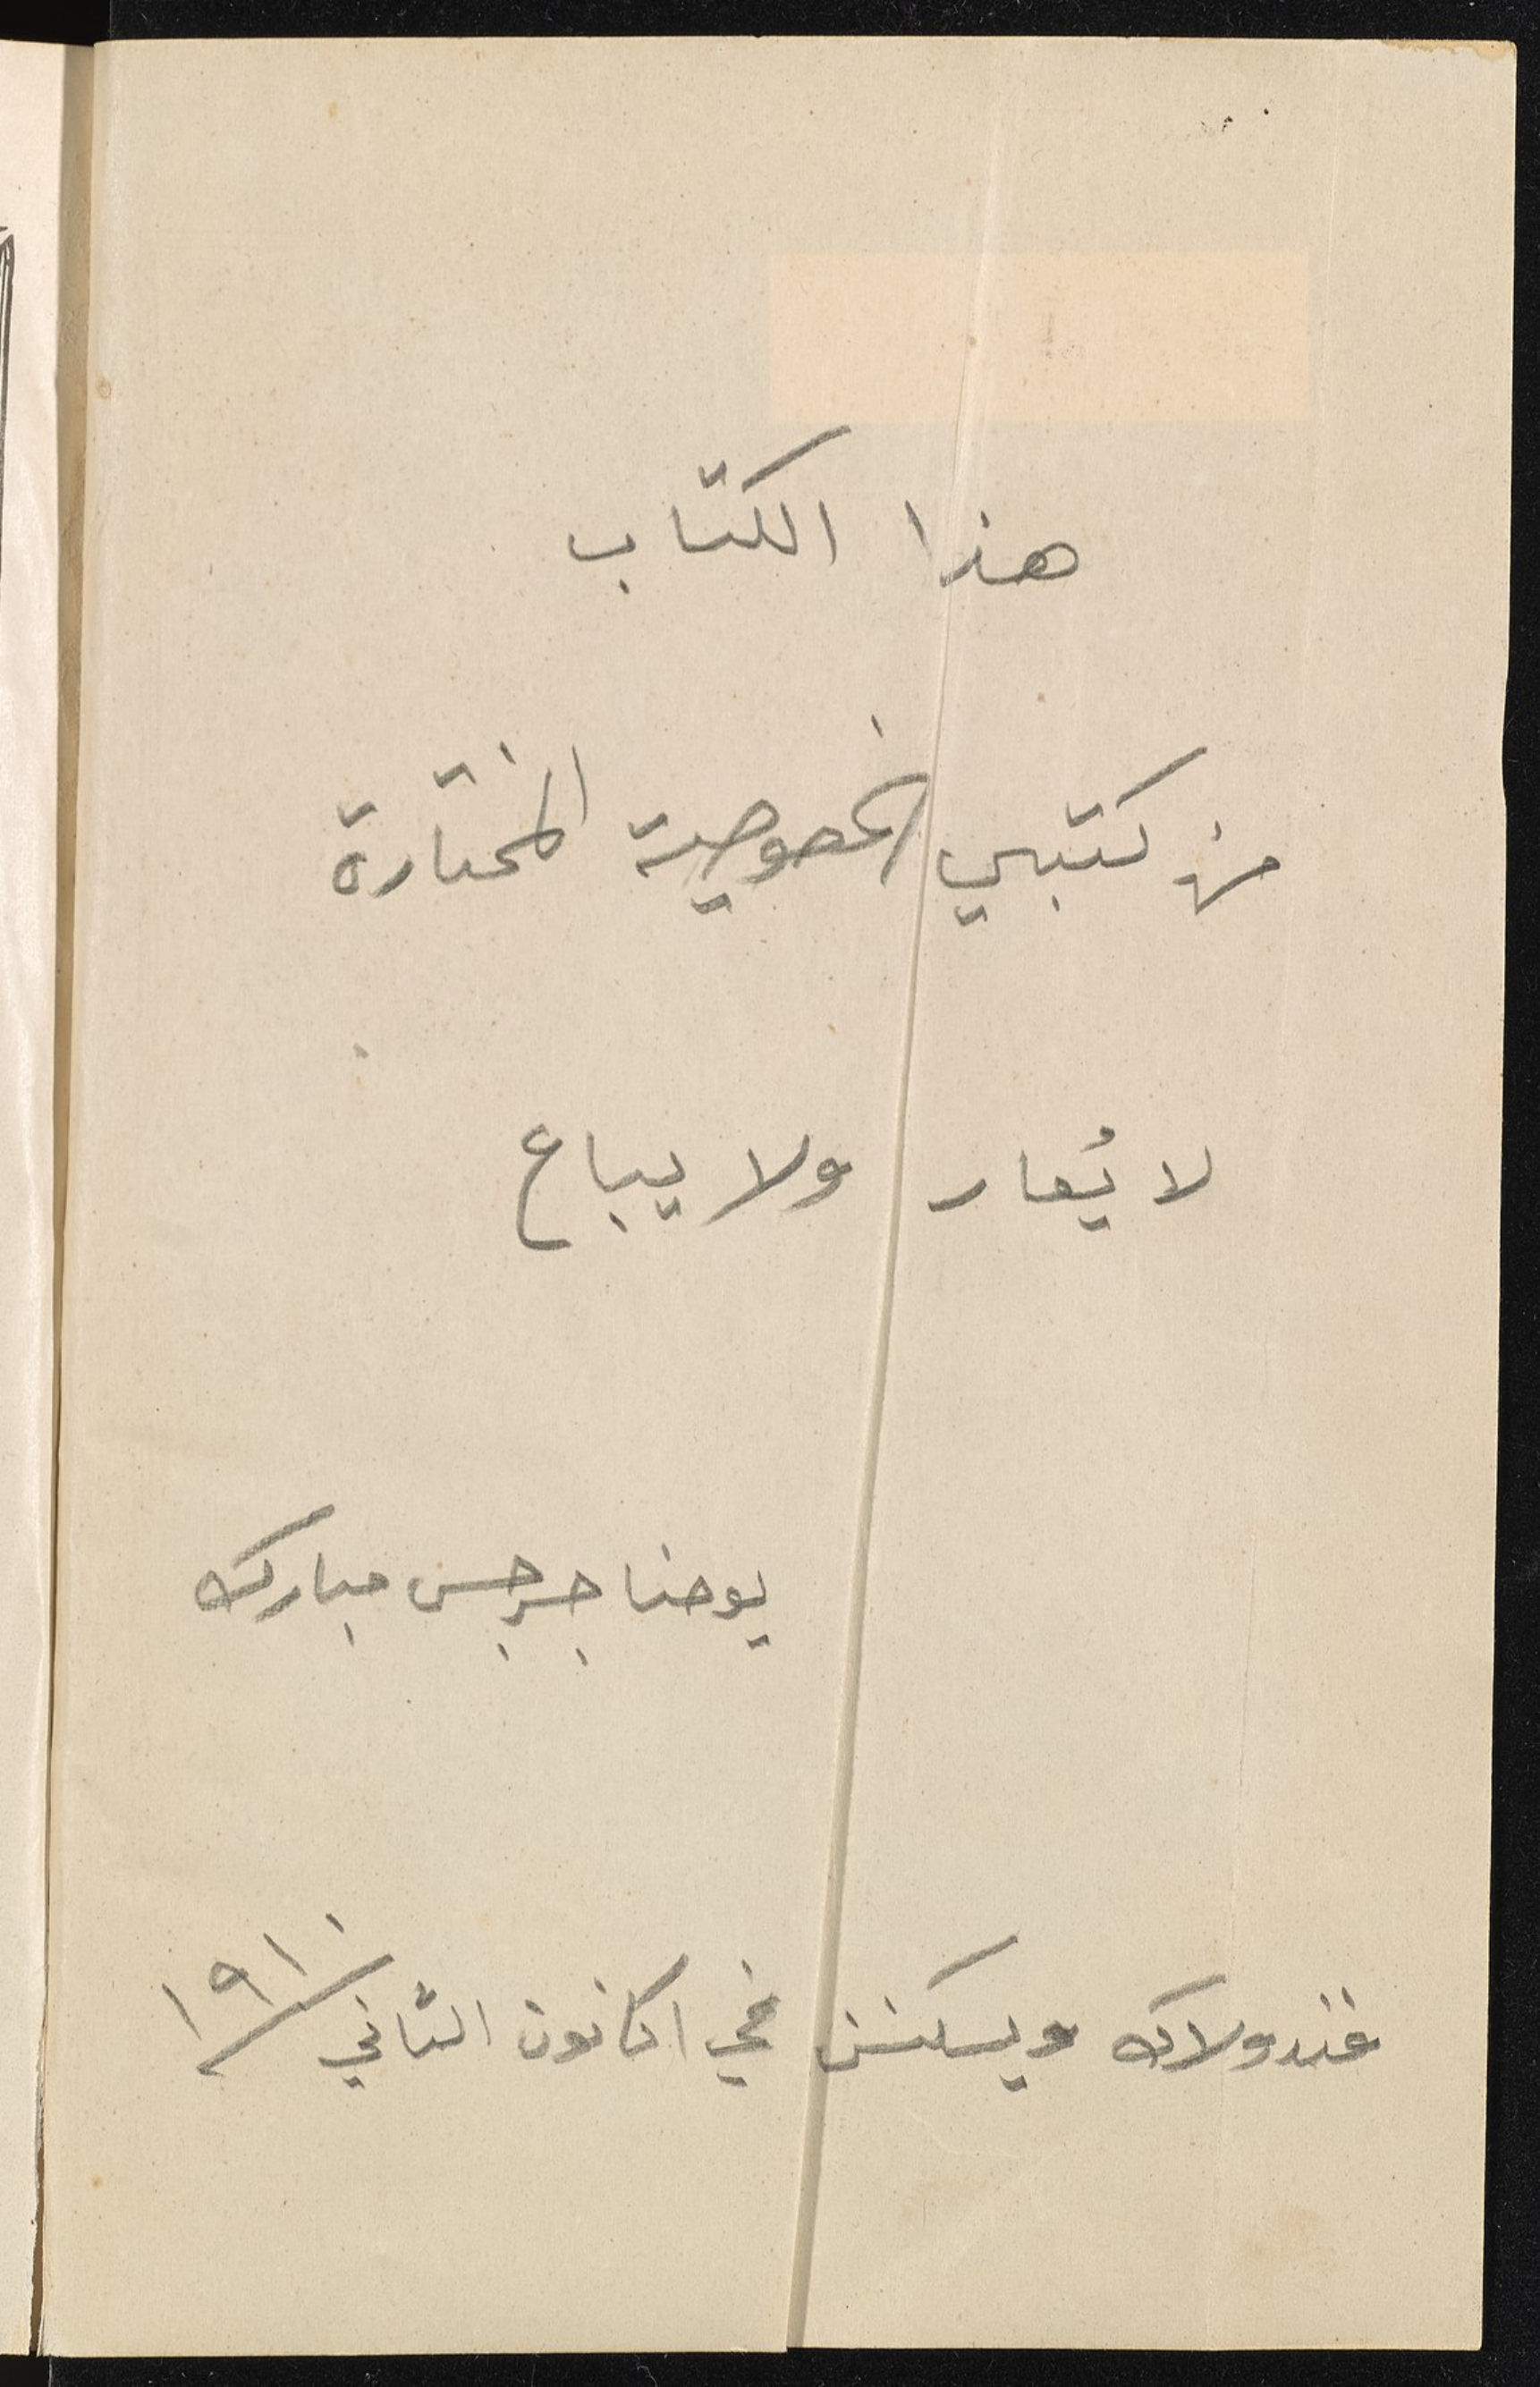 هذا الكتاب
من كتبي الخصوصية المختارة
لا يُعار ولا يباع
يوحنا جرجس مبارك
فندولاك ويسكنسن في ١ كانون الثاني ١٩١٠